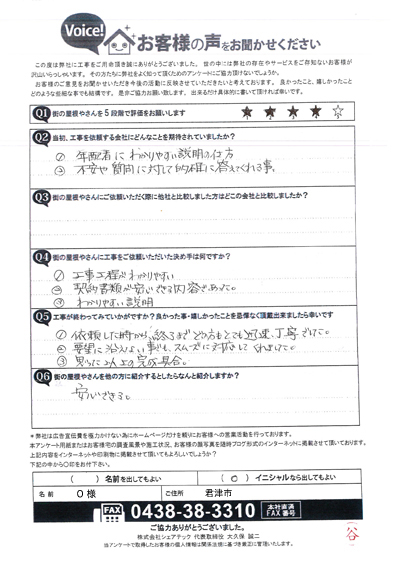 Voice!
お客様の声をお聞かせください
この度は弊社に工事をご用命頂き誠にありがとうございました。世の中には弊社の存在やサービスをご存知ないお客様が
沢山いらっしゃいます。その方たちに弊社をよく知って頂くためのアンケートにご協力頂けないでしょうか。
お客様のご意見をお聞かせいただき今後の活動に反映させていただきたいと考えております。良かったこと、嬉しかったこと
どのような些細な事でも結構です。是非ご協力お願い致します。出来るだけ具体的に書いて頂ければ幸いです。
Q1 街の屋根やさんを5段階で評価をお願いします ★ ★ ★ ★ ☆
Q2 当初、工事を依頼する会社にどんなことを期待されていましたか?
① 年配者にわかりやすい説明の仕方
② 不安や質問に対して的確に答えてくれる事。
Q3 街の屋根やさんにご依頼いただく際に他社と比較しました方はどこの会社と比較しましたか?
Q4 街の屋根やさんに工事をご依頼いただいた決め手は何ですか?
① 工事工程がわかりやすい
② 契約書類が安心できる内容であった。
③ わかりやすい説明
Q5 工事が終わってみていかがですか?良かった事・嬉しかったことを忌憚なく頂戴出来ましたら幸いです
① 依頼した時から、終るまでどの方もとても迅速、丁寧でした。
② 要望に沿えない事も、スムーズに対応してくれました。
③ 思った以上の完成具合。
Q6 街の屋根やさんを他の方に紹介するとしたらなんと紹介しますか?
安心できる。
*弊社は広告宣伝費を極力かけない為にホームページだけを頼りにお客様への営業活動を行っております。
本アンケート用紙またはお客様宅の調査風景や施工状況、お客様の顔写真を随時ブログ形式のインターネットに掲載させて頂いております。
上記内容をインターネットや印刷物に掲載させて頂いてもよろしいでしょうか?
下記の中から○印をお付下さい。
( ) 名前を出してもよい (○) イニシャルなら出してもよい
名前 O様 ご住所 君津市
FAX 0438-38-3310 本社直通 FAX番号
ご協力ありがとうございました。
株式会社シェアテック 代表取締役 大久保 誠二
当アンケートで取得したお客様の個人情報は関係法規に基づき厳正に管理いたします。
谷